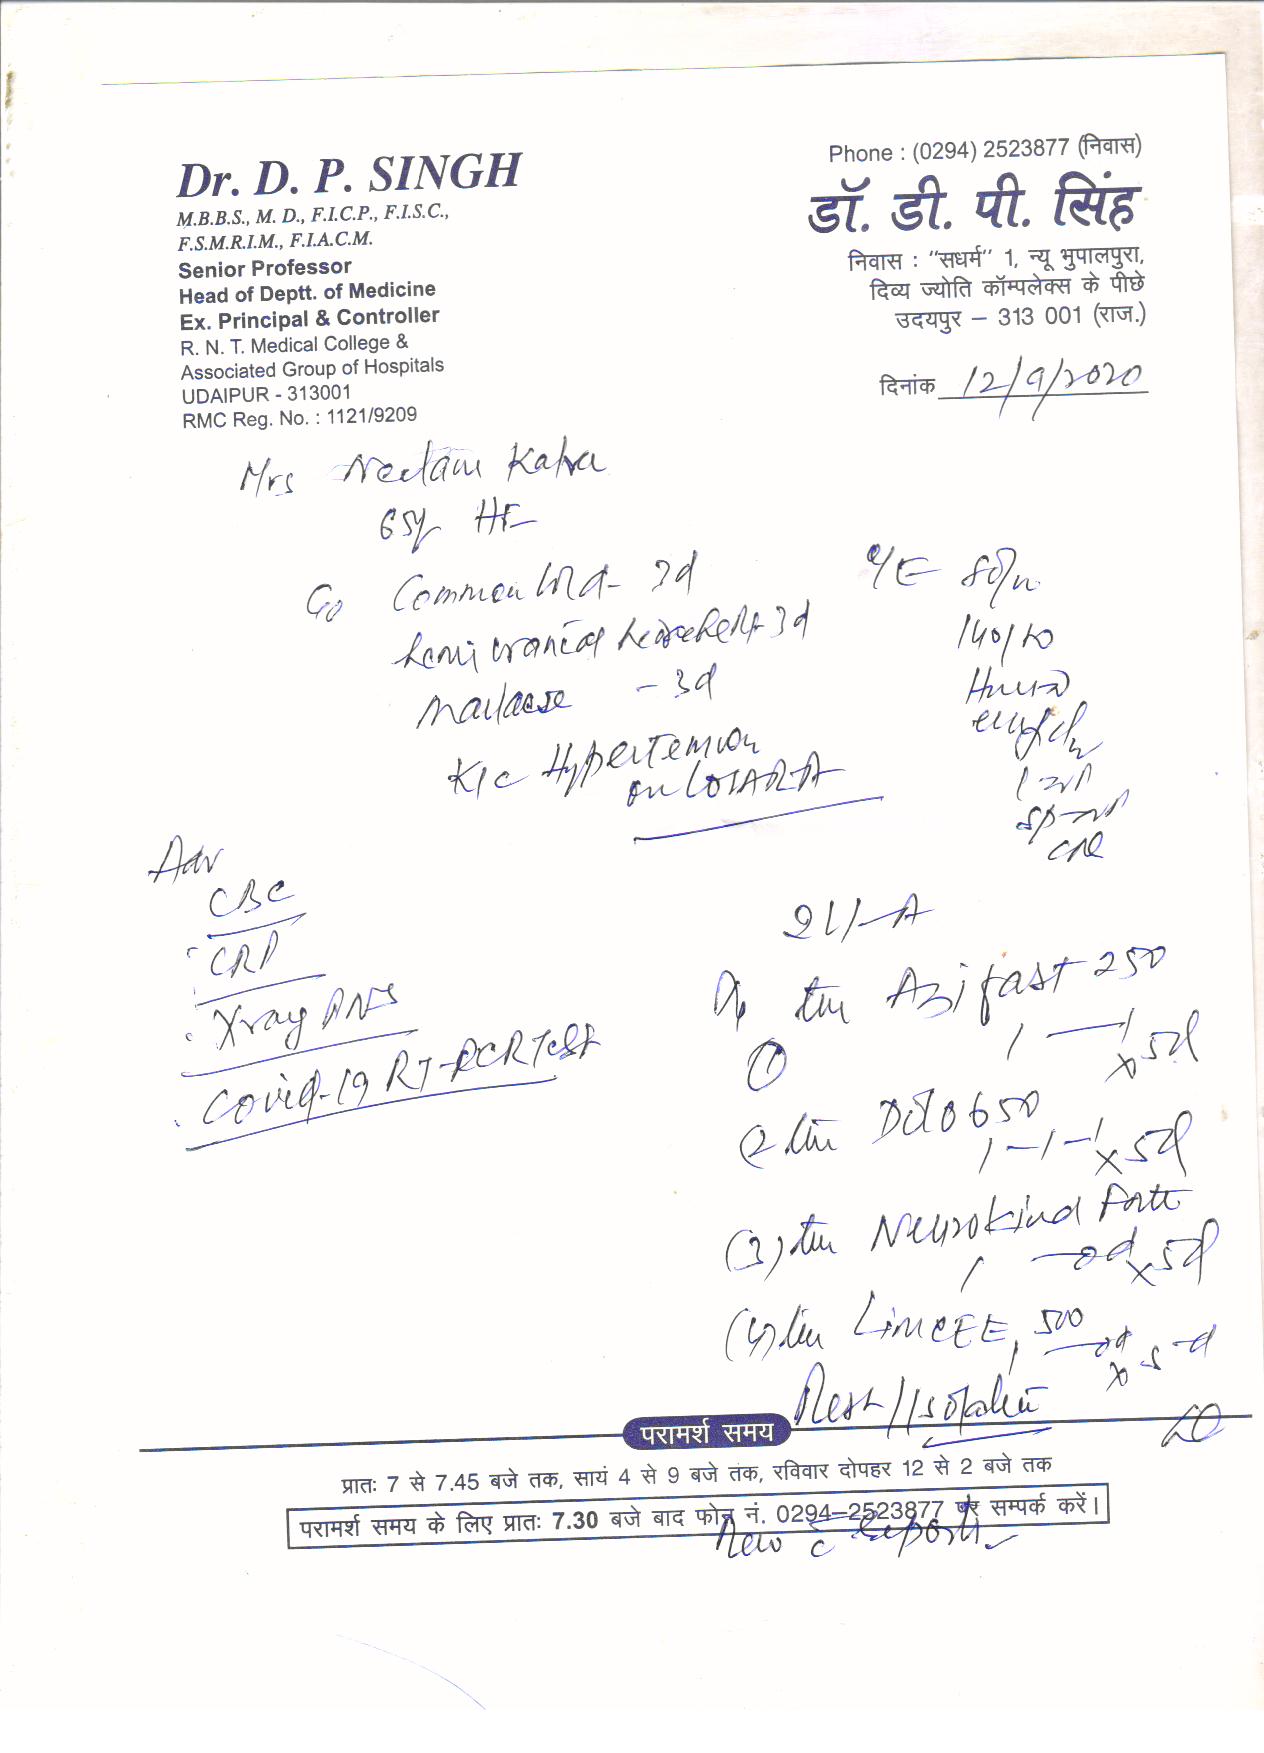 Dr. D. P. SINGH
M.B.B.S., M. D., F.I.C.P., F.I.S.C.,
F.S.M.R.I.M., F.I.A.C.M.
Senior Professor
Head of Deptt. of Medicine
Ex. Principal & Controller
R. N. T. Medical College &
Associated Group of Hospitals
UDAIPUR - 313001
RMC Reg. No. : 1121/9209
Phone : (0294) 2523877 (निवास)
डॉ. डी. पी. सिंह
निवास : "सधर्म" 1, न्यू भुपालपुरा,
दिव्य ज्योति कॉम्पलेक्स के पीछे
उदयपुर – 313 001 (राज.)
दिनांक 12/9/2020
Mrs
65y
Common cold - 3d
hemicranial - 3d
- 3d
K/C Hypertension
on LOSARTA
O/E
Adv
CBC
CRP
Xray PNS
Covid-19 RT-PCR Test
Azifast 250
1 — 1 x 5d
①
② Dolo 650
1 - 1 - 1 x 5d
(3) Neurokind Forte
1 — od x 5d
(4) LimCEE 500
1 — od x 5d
Rest / Isolation
परामर्श समय
प्रातः 7 से 7.45 बजे तक, सायं 4 से 9 बजे तक, रविवार दोपहर 12 से 2 बजे तक
परामर्श समय के लिए प्रातः 7.30 बजे बाद फोन नं. 0294–2523877 पर सम्पर्क करें।
Reports